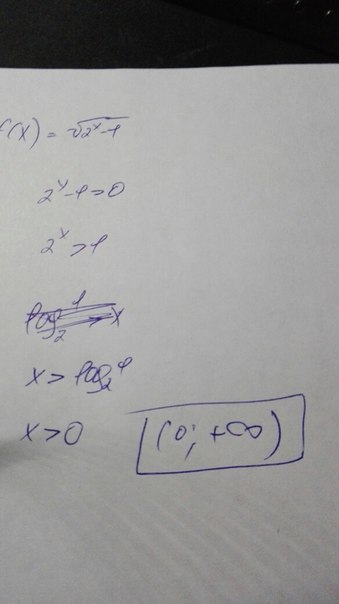 f(x) = √2ˣ-1
2ˣ-1>0
2ˣ>1
x > log₂1
x>0 (0; +∞)